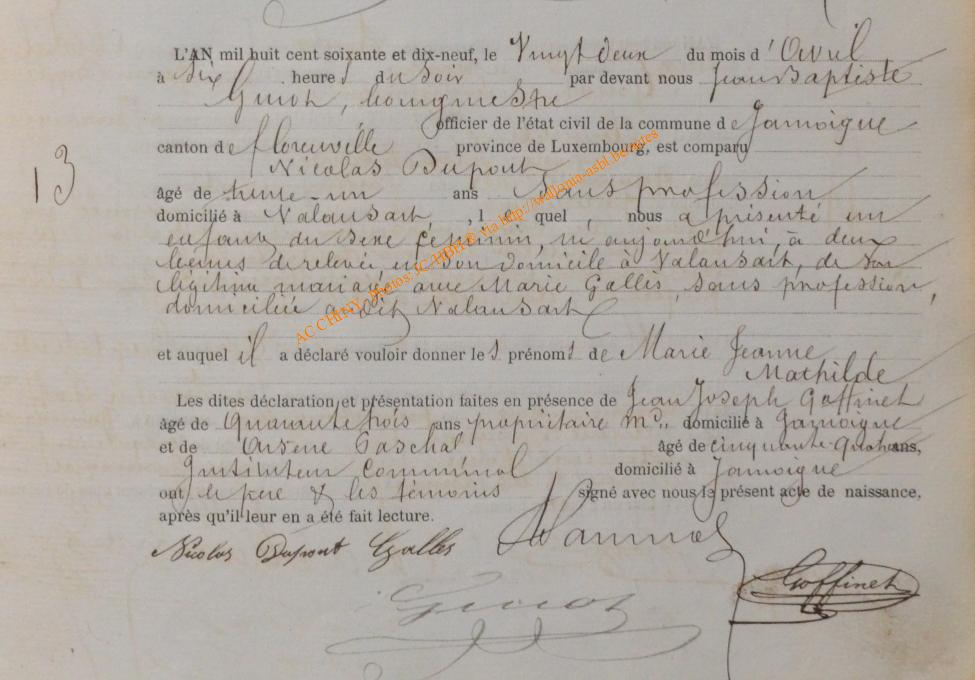 L'AN mil huit cent soixante et dix-neuf, le Vingt deux du mois d'Avril
à Six heures du Soir par devant nous Jean Baptiste
Guiot, bourgmestre
officier de l'état civil de la commune de Jamoigne
canton de florenville province de Luxembourg, est comparu
Nicolas Dupont
13
âgé de trente-un ans Sans profession
domicilié à Valansart, lequel, nous a présenté un
enfant du Sexe féminin, né aujourd'hui, à deux
heures de relevée en Son domicile à Valansart, de Son
légitime mariage avec Marie Gallès, Sans profession,
domiciliée à dit Valansart
et auquel il a déclaré vouloir donner les prénoms de Marie Jeanne
Mathilde
Les dites déclaration et présentation faites en présence de Jean Joseph Goffinet
âgé de Quarante trois ans propriétaire md., domicilié à Jamoigne
et de Arsene Paschal âgé de cinquante-quatre ans,
Instituteur Communal domicilié à Jamoigne
ont, le père & les témoins signé avec nous le présent acte de naissance,
après qu'il leur en a été fait lecture.
Nicolas Dupont Gallès
Goffinet
Guiot
AC CHINY, photos: via http://wallonia-asbl.be/notes